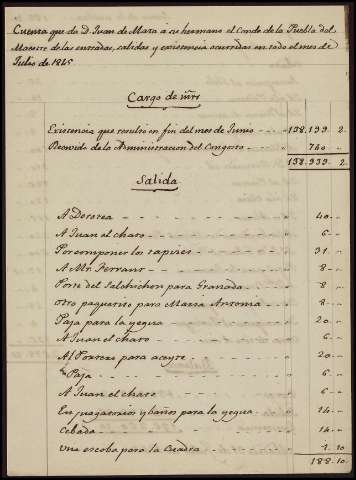 Cuenta que da D. Juan de Mata a su hermano el Conde de la Puebla del
Maestre de las entradas, salidas y existencia ocurridas en todo el mes de
Julio de 1845
Cargo de mrs
Existencia que resultó en fin del mes de Junio 138.199 2
Recivido de la Administracion del Congosto 740
138.939 2
Salida
A Dorotea 40
A Juan el charo 6
Por componer los tapices 31
A Mr. Ferrant 8
Porte del Salchichon para Granada 8
Otro paquetito para Maria Antonia 8
Paja para la yegua 20
A Juan el charo 6
Al Portero para aceyte 20
Paja 6
A Juan el charo 6
En y baños para la yegua 14
Cebada 14
Una escoba para la Cuadra 1 10
188 10